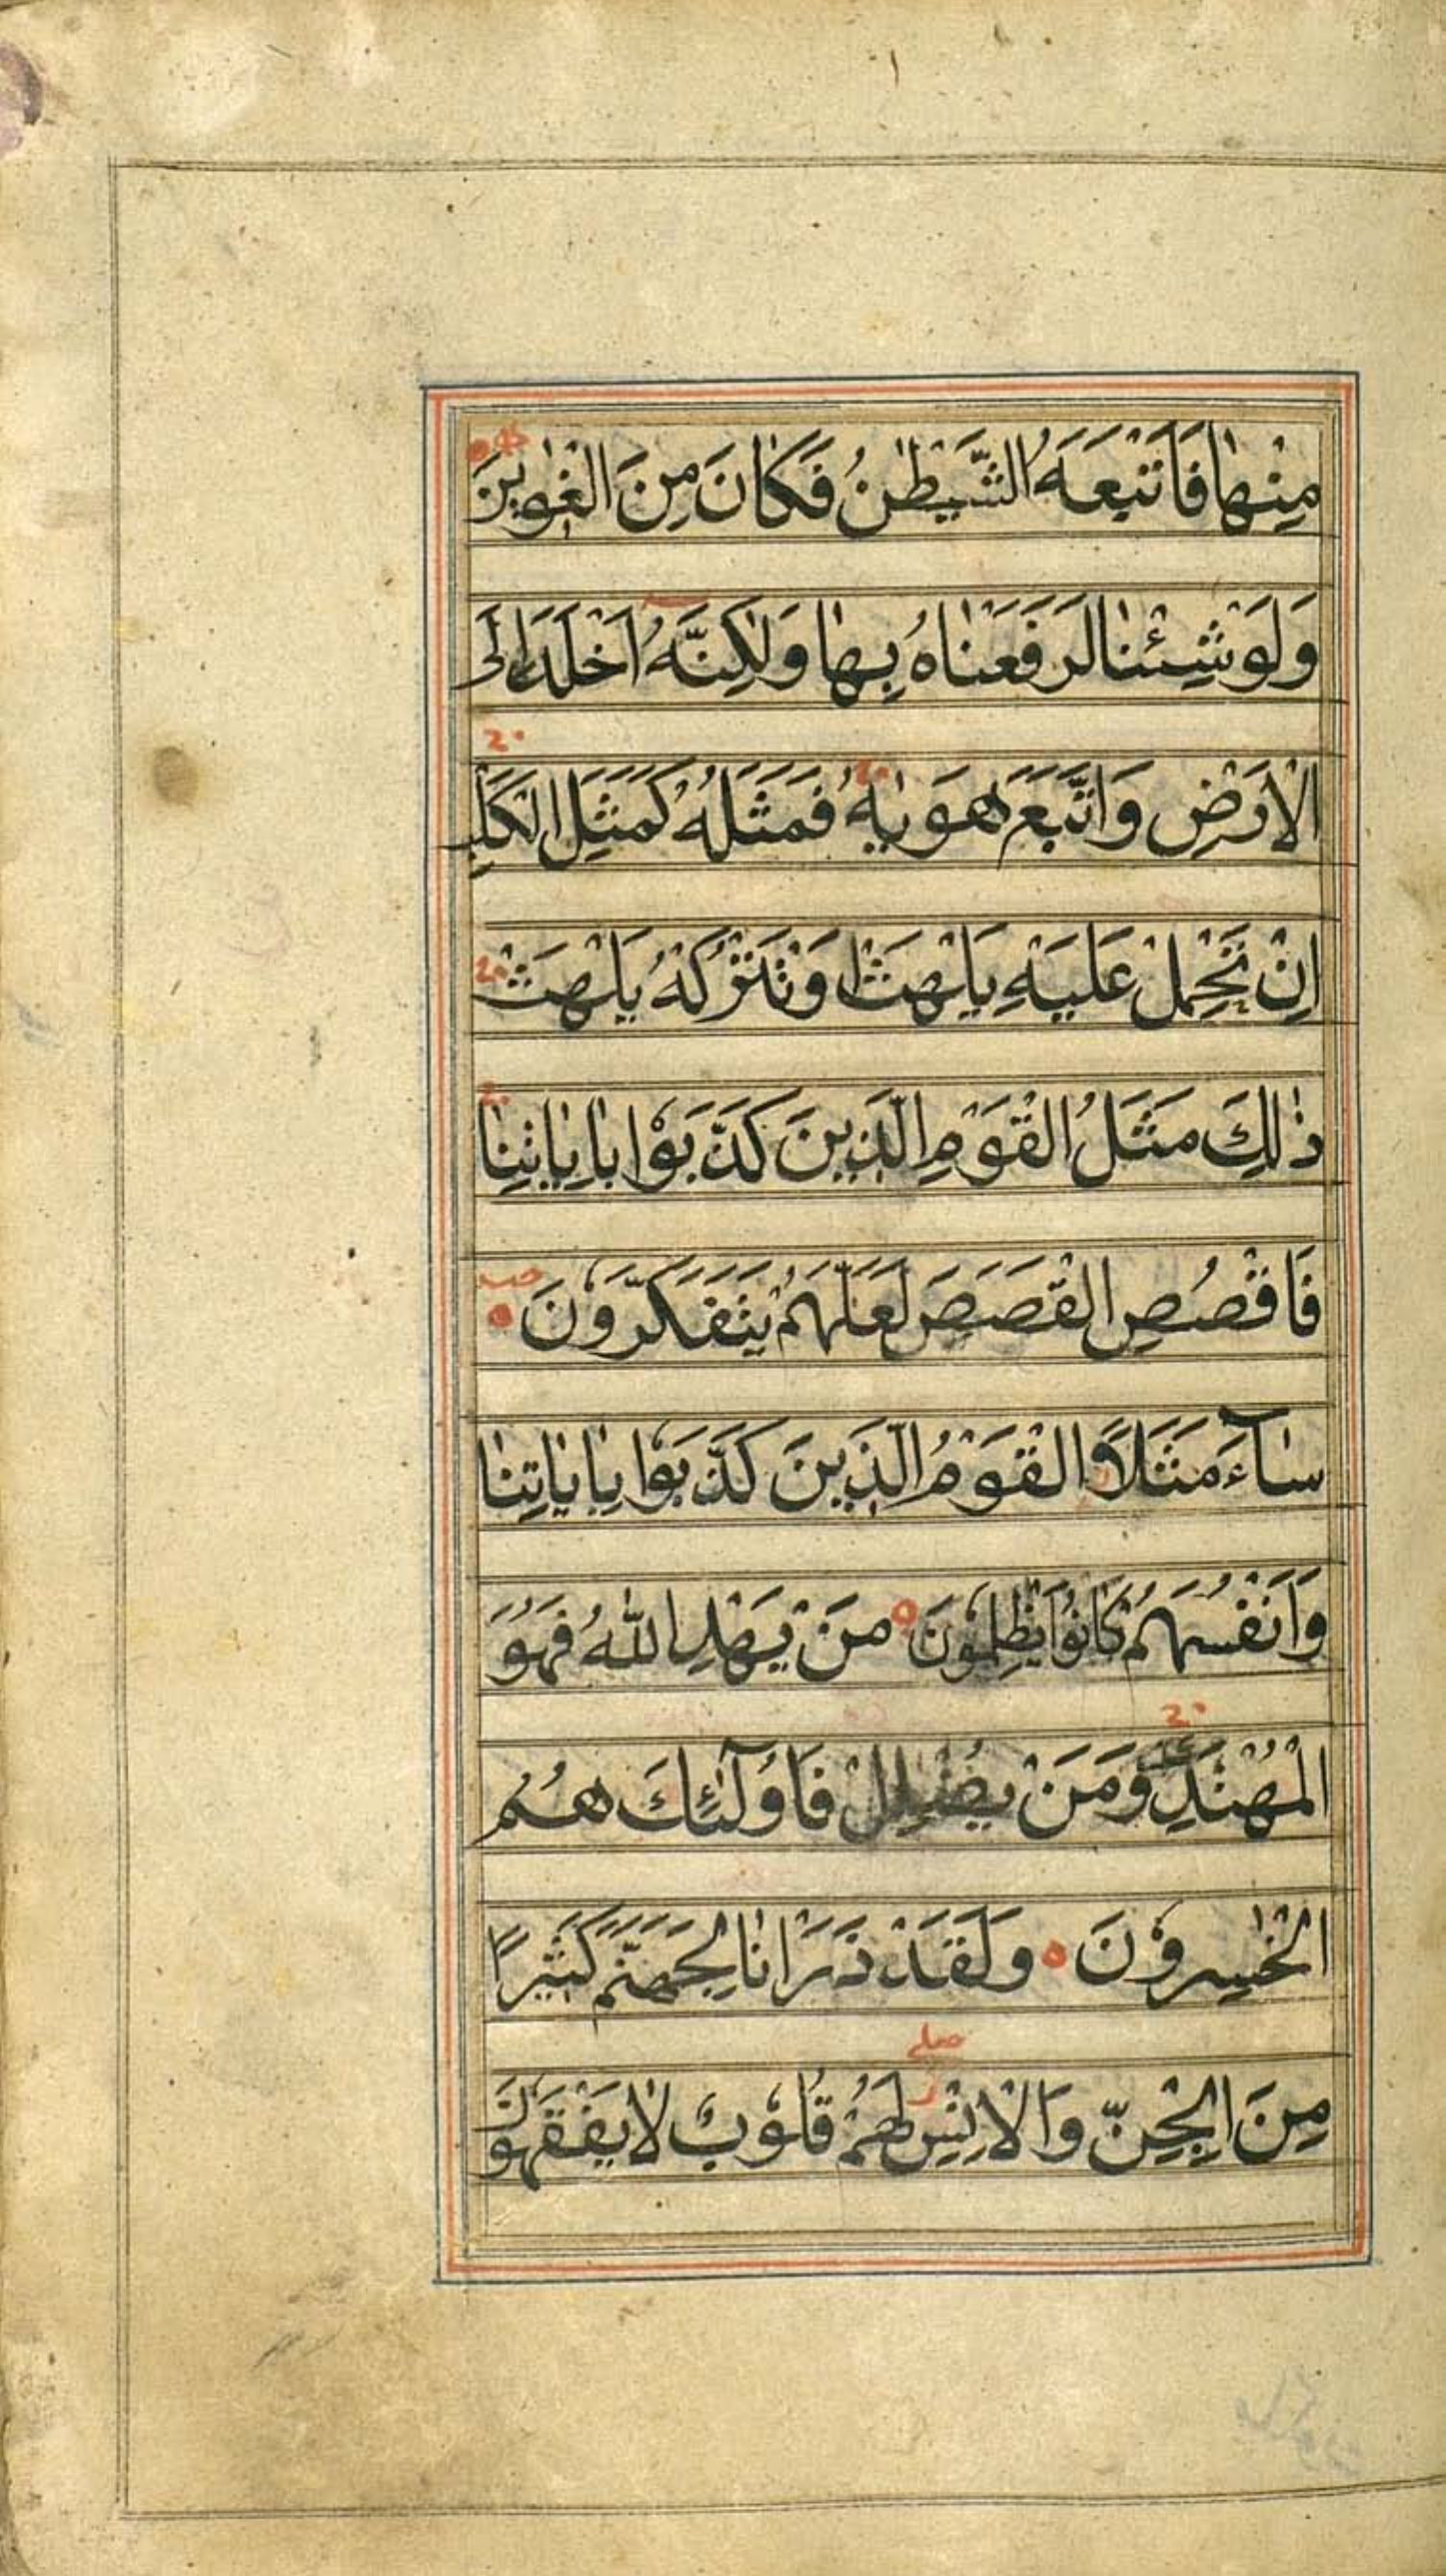 مِنْها فَاَتْبَعَهُ الشَّيْطٰنُ فَكانَ مِنَ الْغٰوينَ
وَلَوْ شِئْنا لَرَفَعْناهُ بِها وَلٰكِنَّهُ اَخْلَدَ اِلَى
الْاَرْضِ وَاتَّبَعَ هَوٰيهُ فَمَثَلُهُ كَمَثَلِ الْكَلْبِ
اِنْ تَحْمِلْ عَلَيْهِ يَلْهَثْ اَوْ تَتْرُكْهُ يَلْهَثْ
ذٰلِكَ مَثَلُ الْقَوْمِ الَّذينَ كَذَّبوُا بِاٰياتِنا
فَاقْصُصِ الْقَصَصَ لَعَلَّهُمْ يَتَفَكَّروُنَ
ساۤءَ مَثَلاًۨ الْقَوْمُ الَّذينَ كَذَّبوُا بِاٰياتِنا
وَاَنْفُسَهُمْ كانوُا يَظْلِموُنَ مَنْ يَهْدِ اللّٰهُ فَهُوَ
الْمُهْتَدي وَمَنْ يُضْلِلْ فَاُولٰۤئِكَ هُمُ
الْخٰسِروُنَ وَلَقَدْ ذَرَاْنا لِجَهَنَّمَ كَثيرًا
مِنَ الْجِنِّ وَالْاِنْسِ لَهُمْ قُلوُبٌ لا يَفْقَهوُنَ